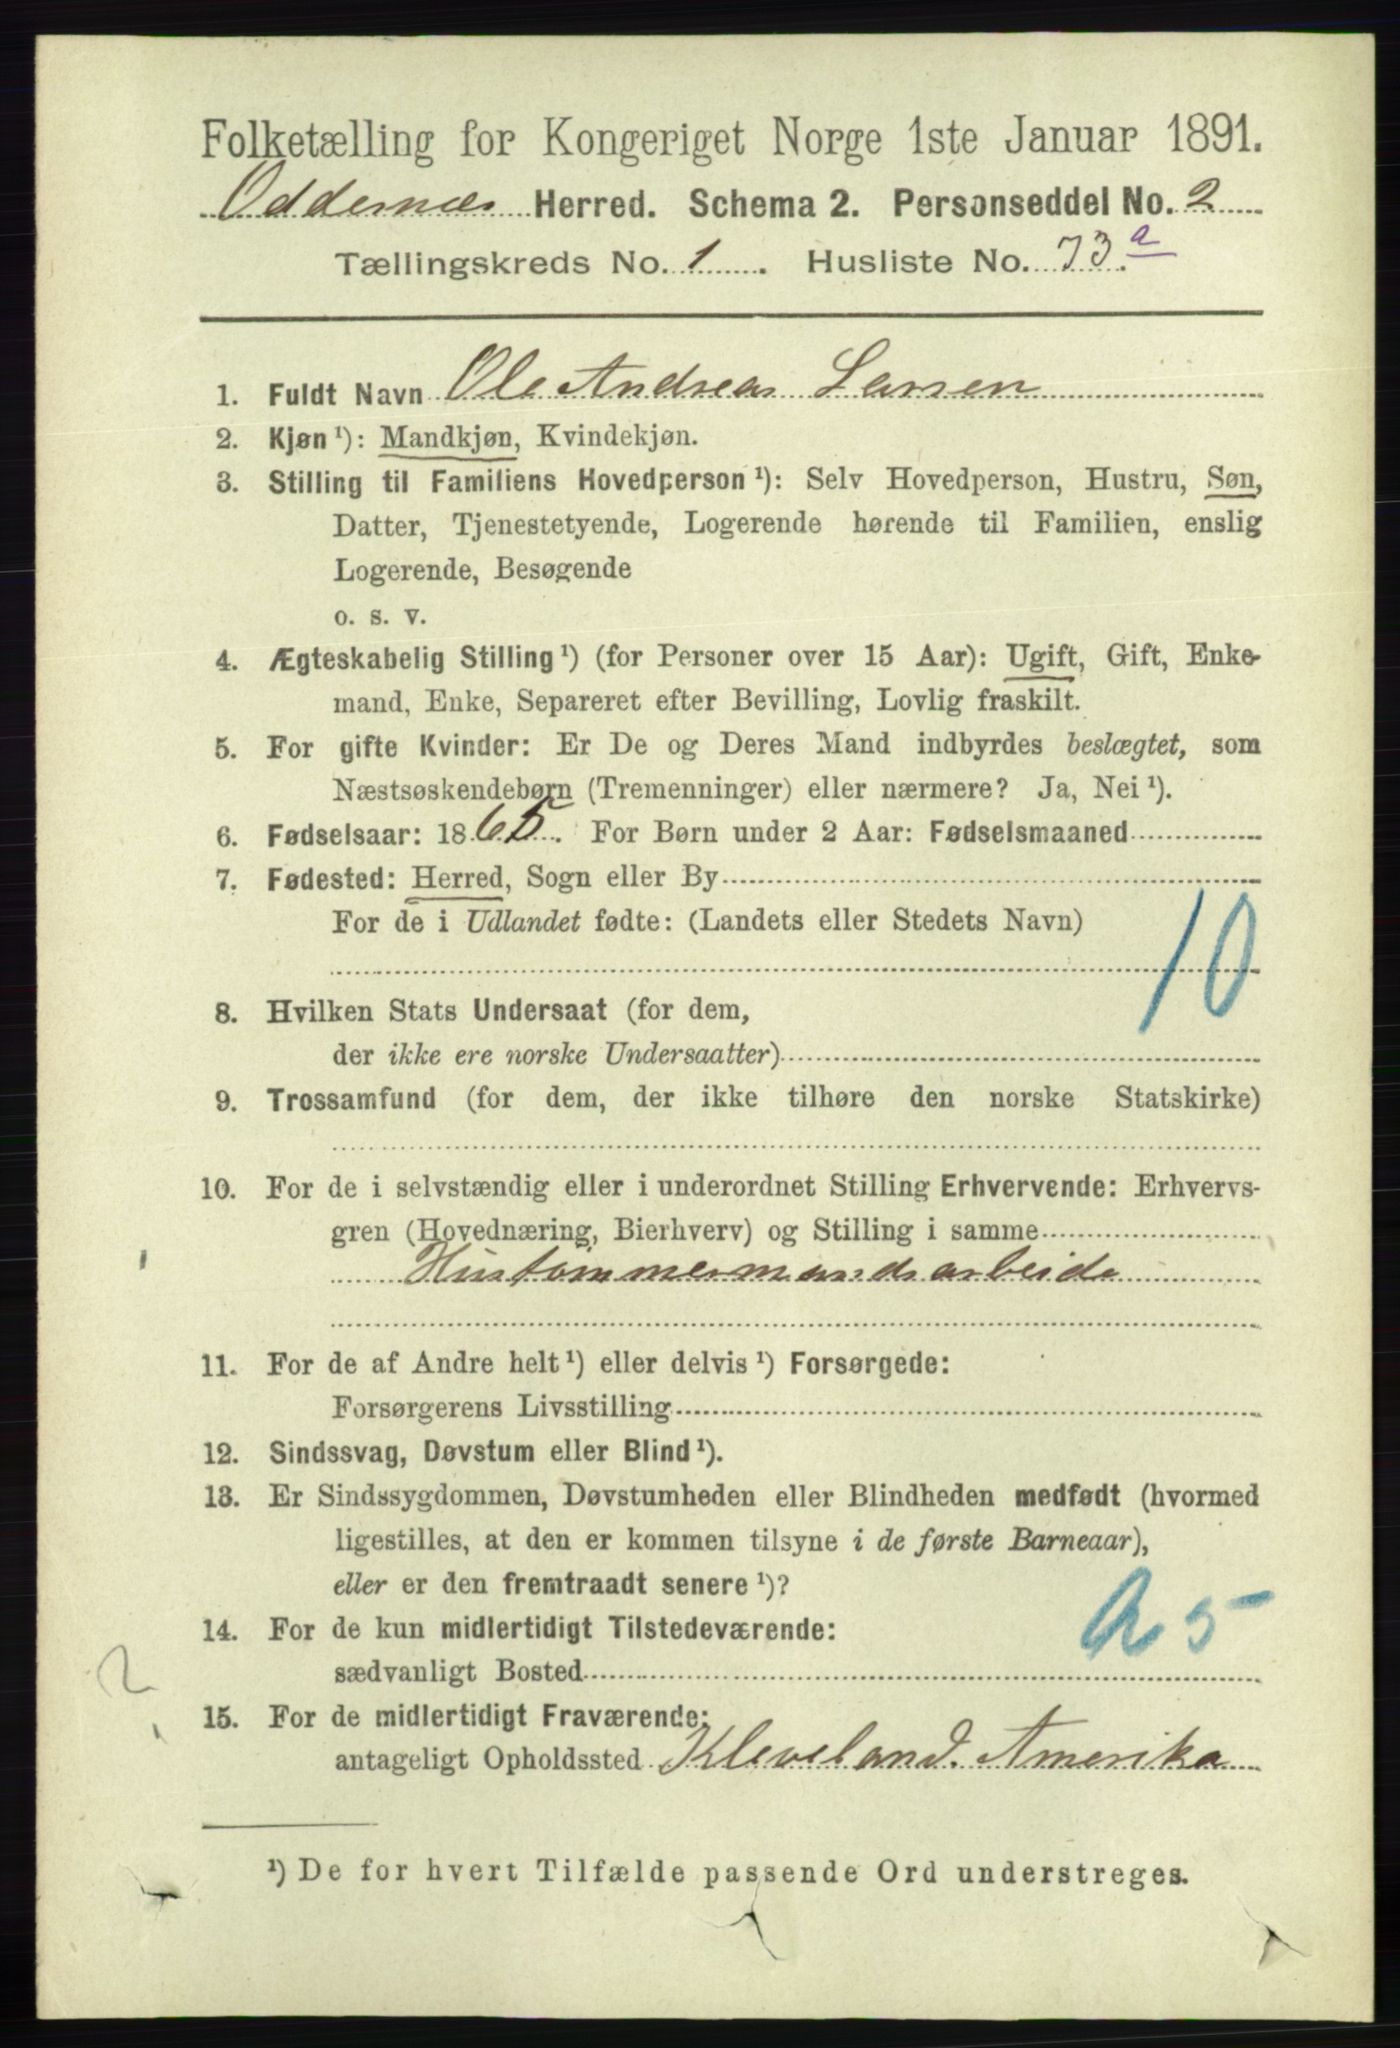 Folketælling for Kongeriget Norge 1ste Januar 1891.
Oddernæs Herred. Schema 2. Personseddel No. 2
Tællingskreds No. 1. Husliste No. 73.a
1. Fuldt Navn Ole Andreas Larsen
2. Kjøn ¹): Mandkjøn, Kvindekjøn.
3. Stilling til Familiens Hovedperson ¹): Selv Hovedperson, Hustru, Søn,
Datter, Tjenestetyende, Logerende hørende til Familien, enslig
Logerende, Besøgende
o. s. v.
4. Ægteskabelig Stilling ¹) (for Personer over 15 Aar): Ugift, Gift, Enke-
mand, Enke, Separeret efter Bevilling, Lovlig fraskilt.
5. For gifte Kvinder: Er De og Deres Mand indbyrdes beslægtet, som
Næstsøskendebørn (Tremenninger) eller nærmere? Ja, Nei ¹).
6. Fødselsaar: 1865. For Børn under 2 Aar: Fødselsmaaned
7. Fødested: Herred, Sogn eller By
For de i Udlandet fødte: (Landets eller Stedets Navn)
10
8. Hvilken Stats Undersaat (for dem,
der ikke ere norske Undersaatter)
9. Trossamfund (for dem, der ikke tilhøre den norske Statskirke)
10. For de i selvstændig eller i underordnet Stilling Erhvervende: Erhvervs-
gren (Hovednæring, Bierhverv) og Stilling i samme
Hustømmermandsarbeide
11. For de af Andre helt ¹) eller delvis ¹) Forsørgede:
Forsørgerens Livsstilling
12. Sindssvag, Døvstum eller Blind ¹).
13. Er Sindssygdommen, Døvstumheden eller Blindheden medfødt (hvormed
ligestilles, at den er kommen tilsyne i de første Barneaar),
eller er den fremtraadt senere ¹)?
14. For de kun midlertidigt Tilstedeværende:
sædvanligt Bosted
15. For de midlertidigt Fraværende:
antageligt Opholdssted Kleveland. Amerika
¹) De for hvert Tilfælde passende Ord understreges.